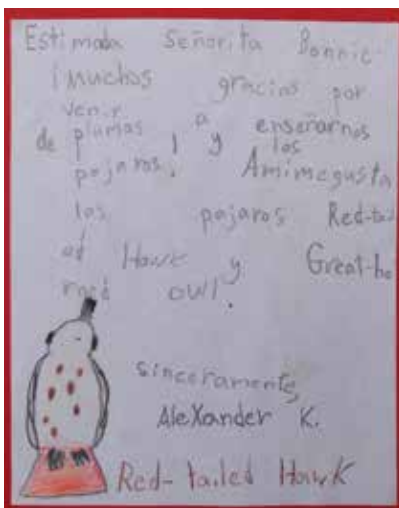 Estimada Señorita Bonnie
¡Muchos gracias por
venir a enseñarnos
de plumas, y los
pajaros. Amimegusta
los pajaros Red-tail
ed Hawk y Great-ho
rned owl.
sinceramente,
AleXander K.
Red-tailed Hawk